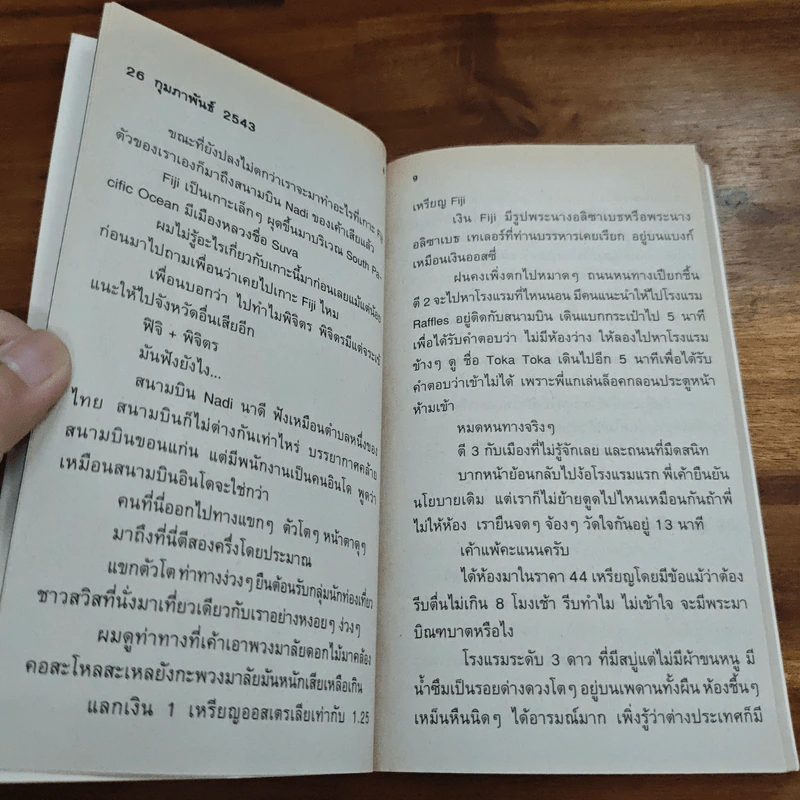 26 กุมภาพันธ์ 2543
ขณะที่ยังปลงไม่ตกว่าเราจะมาทำอะไรที่เกาะ Fiji
ตัวของเราเองก็มาถึงสนามบิน Nadi ของเค้าเสียแล้ว
Fiji เป็นเกาะเล็กๆ ผุดขึ้นมาบริเวณ South Pa-
cific Ocean มีเมืองหลวงชื่อ Suva
ผมไม่รู้อะไรเกี่ยวกับเกาะนี้มาก่อนเลยแม้แต่น้อย
ก่อนมาไปถามเพื่อนว่าเคยไปเกาะ Fiji ไหม
เพื่อนบอกว่า ไปทำไมพิจิตร พิจิตรมีแต่จระเข้
แนะให้ไปจังหวัดอื่นเสียอีก
ฟิจิ + พิจิตร
มันฟังยังไง...
สนามบิน Nadi นาดี ฟังเหมือนตำบลหนึ่งของ
ไทย สนามบินก็ไม่ต่างกันเท่าไหร่ บรรยากาศคล้าย
สนามบินขอนแก่น แต่มีพนักงานเป็นคนอินโด พูดว่า
เหมือนสนามบินอินโดจะใช่กว่า
คนที่นี่ออกไปทางแขกๆ ตัวโตๆ หน้าตาดุๆ
มาถึงที่นี่ตีสองครึ่งโดยประมาณ
แขกตัวโตท่าทางง่วงๆ ยืนต้อนรับกลุ่มนักท่องเที่ยว
ชาวสวิสที่นั่งมาเที่ยวเดียวกับเราอย่างหงอยๆ ง่วงๆ
ผมดูท่าทางที่เค้าเอาพวงมาลัยดอกไม้มาคล้อง
คอสะโหลสะเหลยังกะพวงมาลัยมันหนักเสียเหลือเกิน
แลกเงิน 1 เหรียญออสเตรเลียเท่ากับ 1.25
9
เหรียญ Fiji
เงิน Fiji มีรูปพระนางอลิซาเบธหรือพระนาง
อลิซาเบธ เทเลอร์ที่ท่านบรรหารเคยเรียก อยู่บนแบงก์
เหมือนเงินออสซี่
ฝนคงเพิ่งตกไปหมาดๆ ถนนหนทางเปียกชื้น
ตี 2 จะไปหาโรงแรมที่ไหนนอน มีคนแนะนำให้ไปโรงแรม
Raffles อยู่ติดกับสนามบิน เดินแบกกระเป๋าไป 5 นาที
เพื่อได้รับคำตอบว่า ไม่มีห้องว่าง ให้ลองไปหาโรงแรม
ข้างๆ ดู ชื่อ Toka Toka เดินไปอีก 5 นาทีเพื่อได้รับ
คำตอบว่าเข้าไม่ได้ เพราะพี่แกเล่นล็อคกลอนประตูหน้า
ห้ามเข้า
หมดหนทางจริงๆ
ตี 3 กับเมืองที่ไม่รู้จักเลย และถนนที่มืดสนิท
บากหน้าย้อนกลับไปง้อโรงแรมแรก พี่เค้ายืนยัน
นโยบายเดิม แต่เราก็ไม่ย้ายตูดไปไหนเหมือนกันถ้าพี่
ไม่ให้ห้อง เรายืนจดๆ จ้องๆ วัดใจกันอยู่ 13 นาที
เค้าแพ้คะแนนครับ
ได้ห้องมาในราคา 44 เหรียญโดยมีข้อแม้ว่าต้อง
รีบตื่นไม่เกิน 8 โมงเช้า รีบทำไม ไม่เข้าใจ จะมีพระมา
บิณฑบาตหรือไง
โรงแรมระดับ 3 ดาว ที่มีสบู่แต่ไม่มีผ้าขนหนู มี
น้ำซึมเป็นรอยด่างดวงโตๆ อยู่บนเพดานทั้งผืน ห้องชื้นๆ
เหม็นหืนนิดๆ ได้อารมณ์มาก เพิ่งรู้ว่าต่างประเทศก็มี